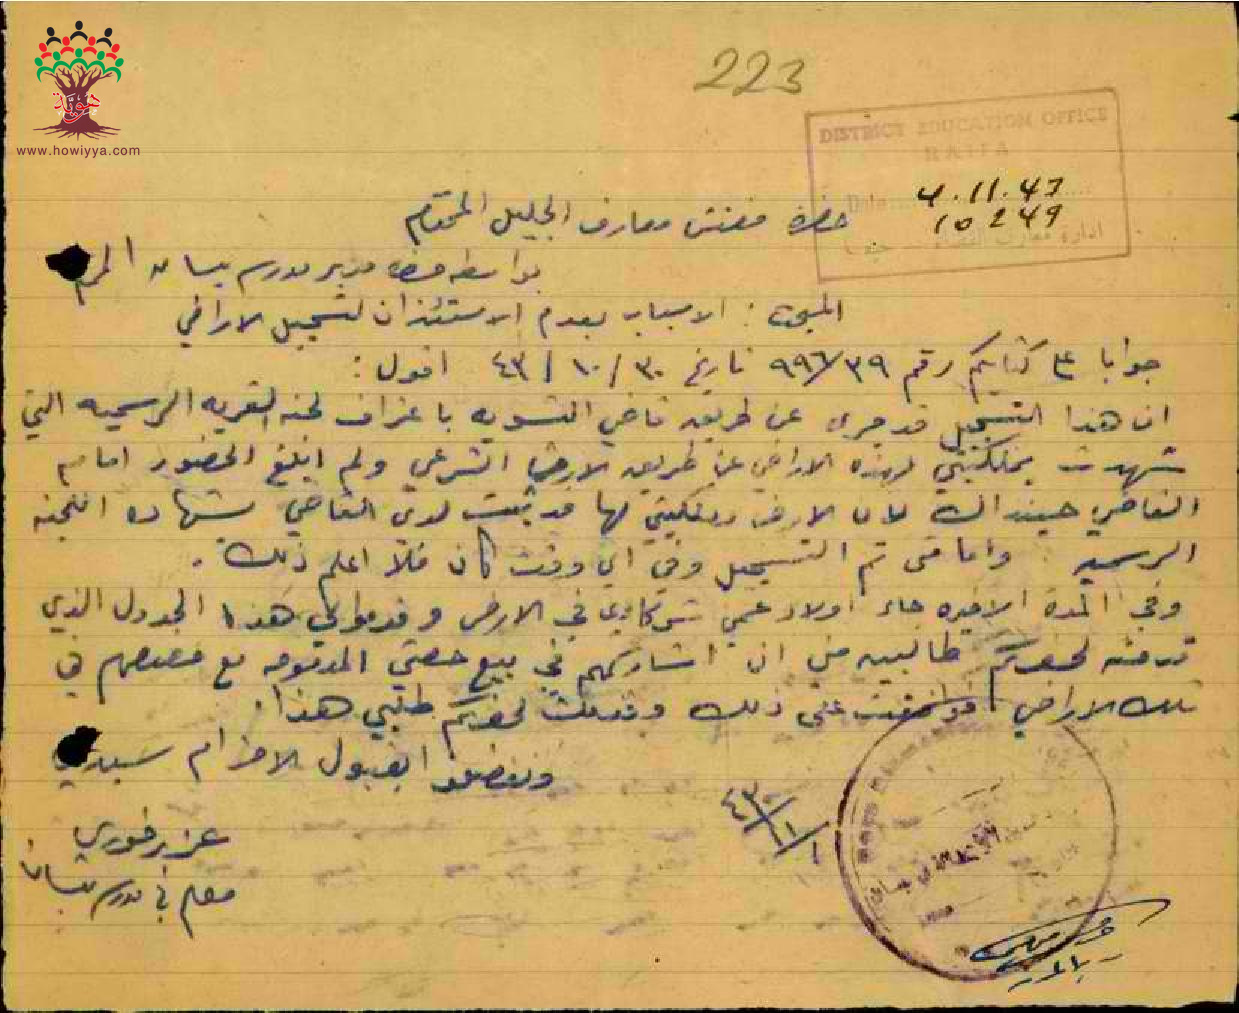 هوية
www.howiyya.com
223
DISTRICT EDUCATION OFFICE
HAIFA
4.11.43
10249
ادارة معارف
حضرة مفتش معارف الجليل المحترم
بواسطة حضرة مدير مدرسة بيسان
المبحث : الاسباب لعدم الاستئذان لتسجيل الاراضي
جوابا على كتابكم رقم ٩٩٦/٣٩ تاريخ ٣٠/١٠/٤٣ اقول :
ان هذا التسجيل قد جرى عن طريق قاضي التسوية باعتراف لجنة القرية الرسمية التي
شهدت بملكيتي لهذه الاراضي عن طريق الارث الشرعي ولم ابلغ الحضور امام
القاضي حينذاك لان الارض وملكيتي لها قد ثبتت لدى القاضي بشهادة اللجنة
الرسمية واما متى تم التسجيل وفي اي وقت كان فلا اعلم ذلك .
وفي المدة الاخيرة جاء اولاد عمي شركاوي في الارض وقدموا لي هذا الجدول الذي
قدمته لحضرتكم طالبين مني ان اشاركهم في بيع حصتي المدقومه مع حصصهم في
تلك الاراضي فوافقت على ذلك وقدمت لحضرتكم طلبي هذا .
وتفضلوا بقبول الاحترام سيدي
١/١١/٤٣
خوري
معلم في مدرسة بيسان